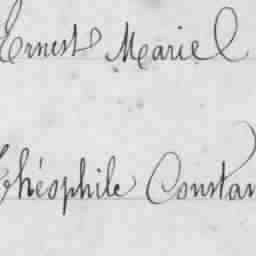 Ernest Marie
Théophile Constan